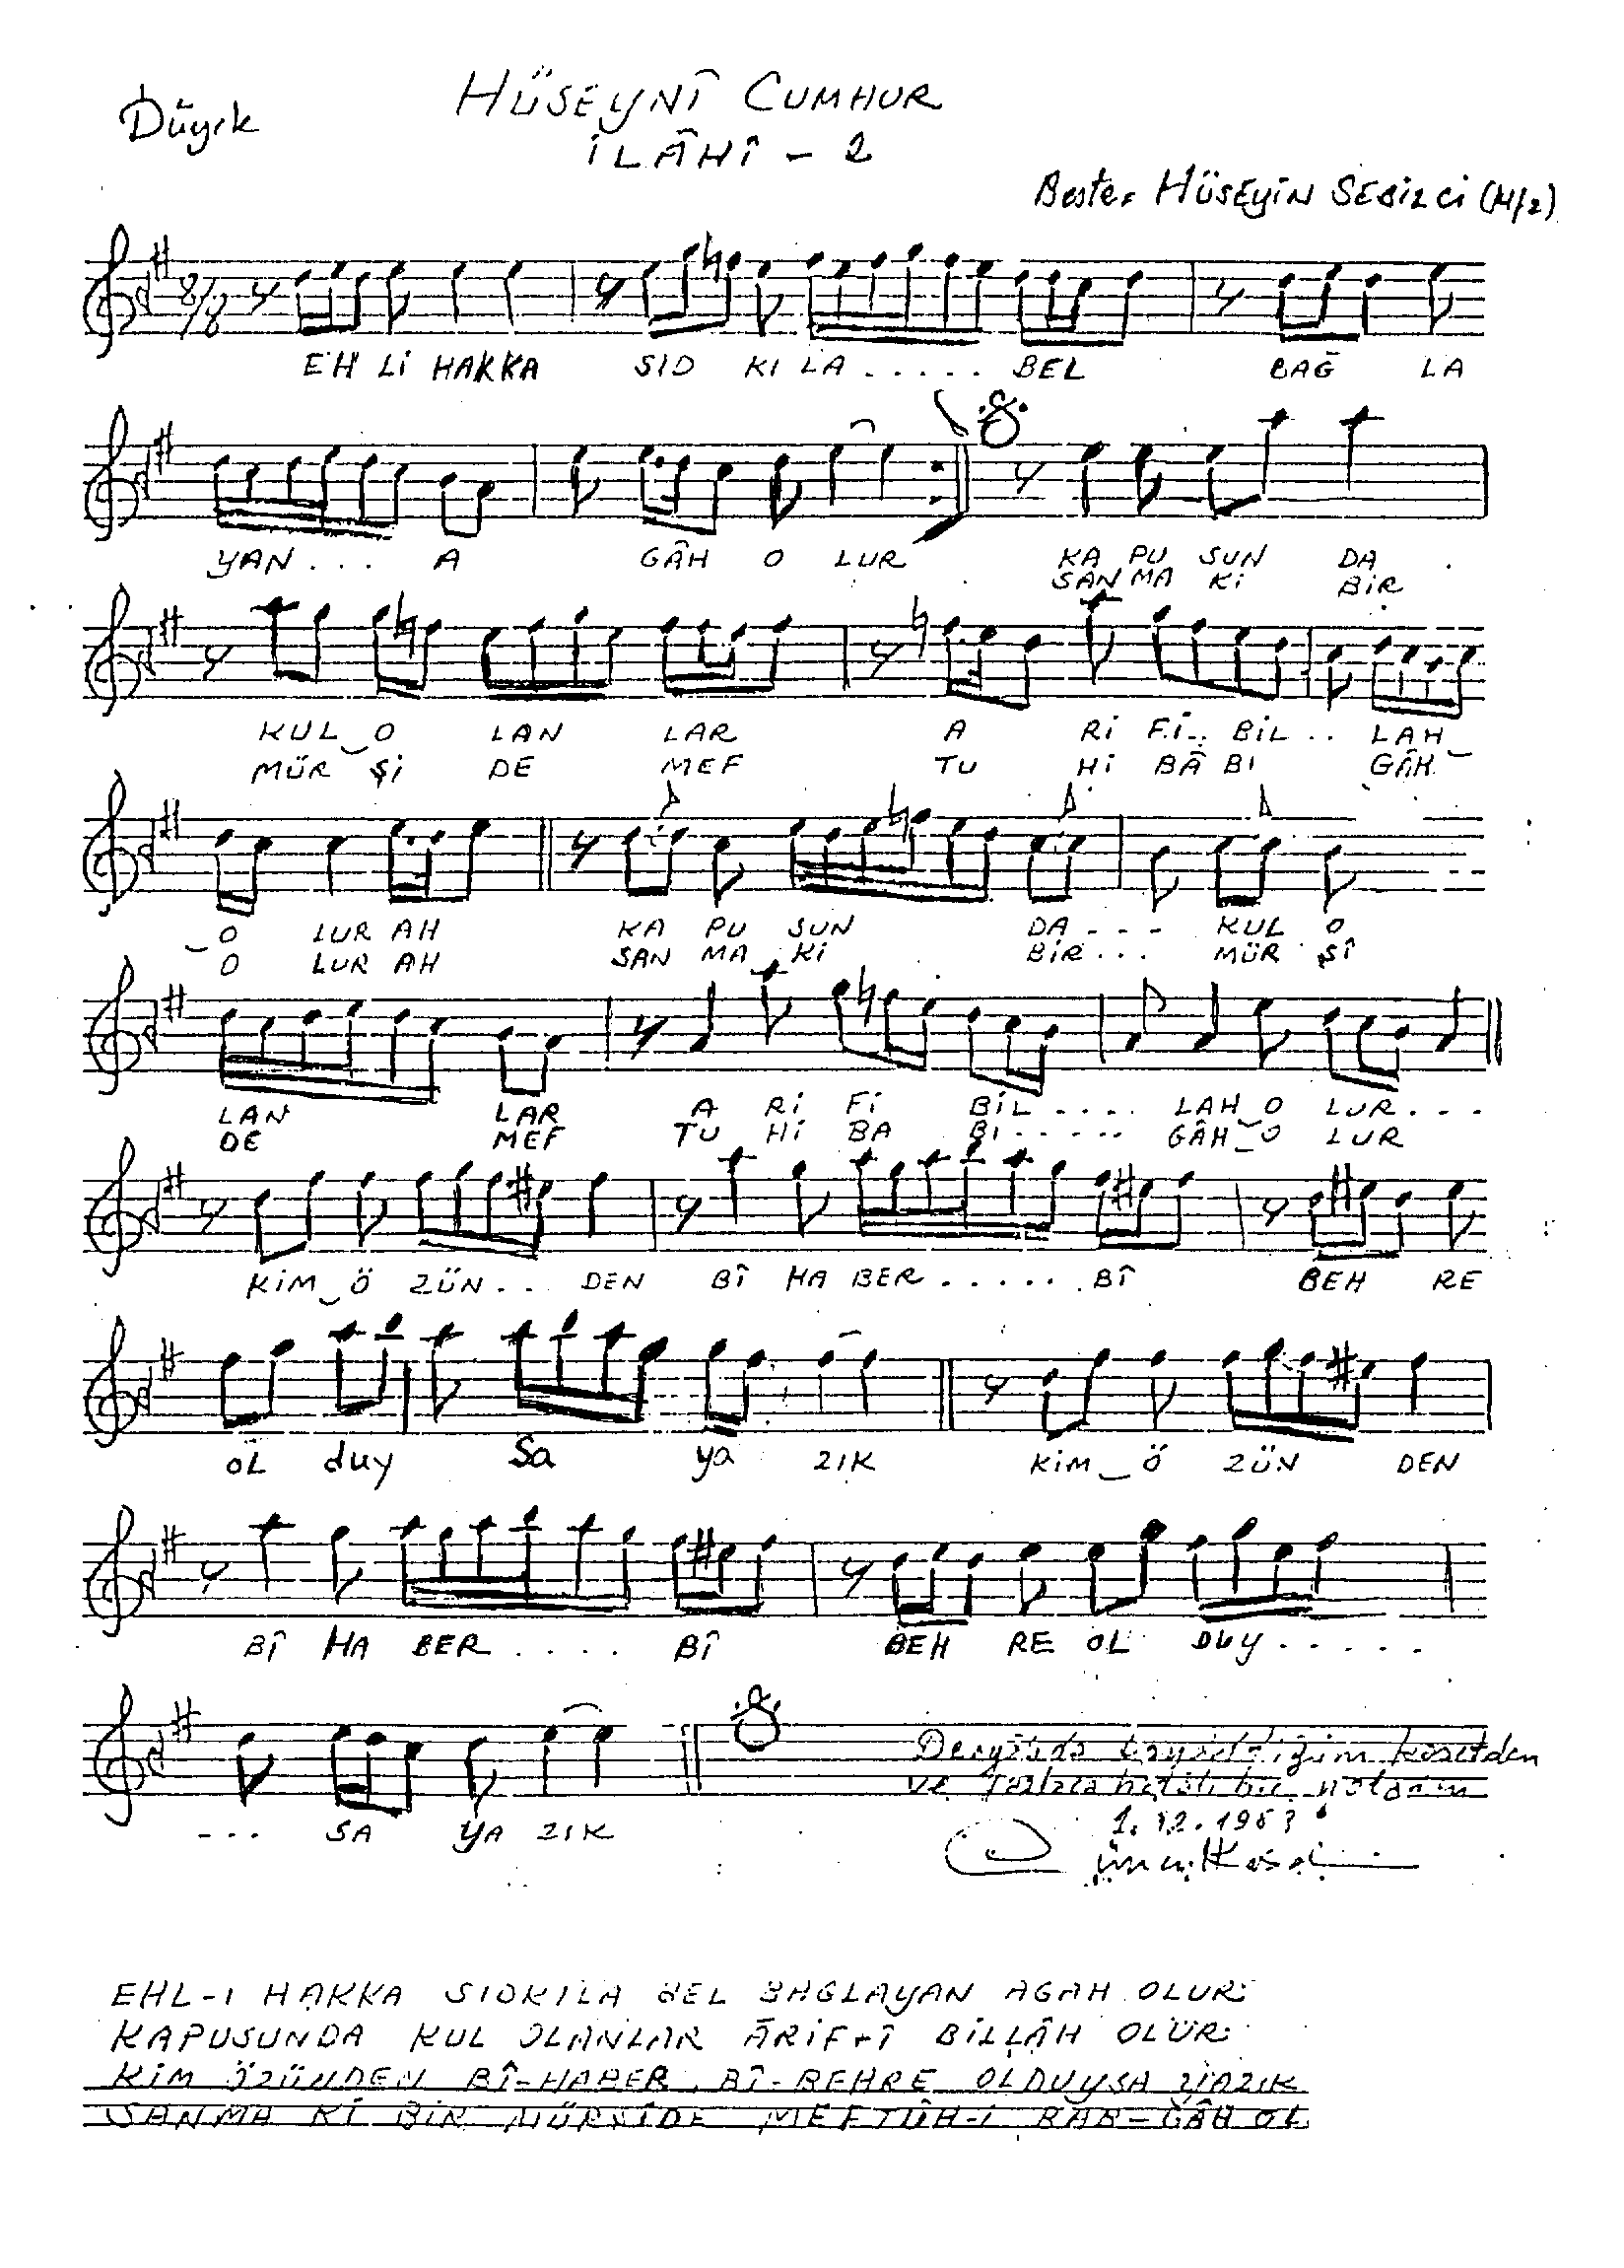 Düyek
HÜSEYNÎ CUMHUR
İLÂHÎ - 2
Beste: HÜSEYİN SEBİLCİ
8/8
EH Lİ HAKKA SID KI LA ..... BEL BAĞ LA
YAN ... A GÂH O LUR KA PU SUN DA
SAN MA Kİ BİR
KUL O LAN LAR A Rİ Fİ.. BİL .. LAH
MÜR Şİ DE MEF TU Hİ BÂ BI GÂH
O LUR AH KA PU SUN DA --- KUL O
O LUR AH SAN MA Kİ BİR ... MÜR Şİ
LAN LAR A Rİ Fİ BİL .... LAH O LUR ...
DE MEF TU Hİ BA BI ..... GÂH O LUR
KİM Ö ZÜN ... DEN BÎ HA BER ...... BÎ BEH RE
OL duy Sa ya ZIK KİM Ö ZÜN DEN
BÎ HA BER .... BÎ BEH RE OL DUY .....
... SA YA ZIK
ve
EHL-İ HAKKA SIDKILA BEL BAĞLAYAN AGAH OLUR
KAPUSUNDA KUL OLANLAR ÂRİF-İ BİLLÂH OLUR
KİM ÖZÜNDEN BÎ-HABER, BÎ-BEHRE OLDUYSA YAZIK
SANMA Kİ BİR MÜRŞİDE MEFTÛH-İ BAB-GÂH OL